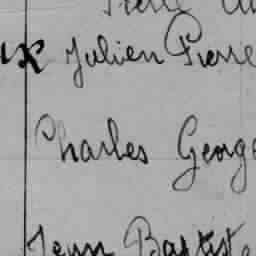 Julien Pierre
Charles George
Jean Baptiste